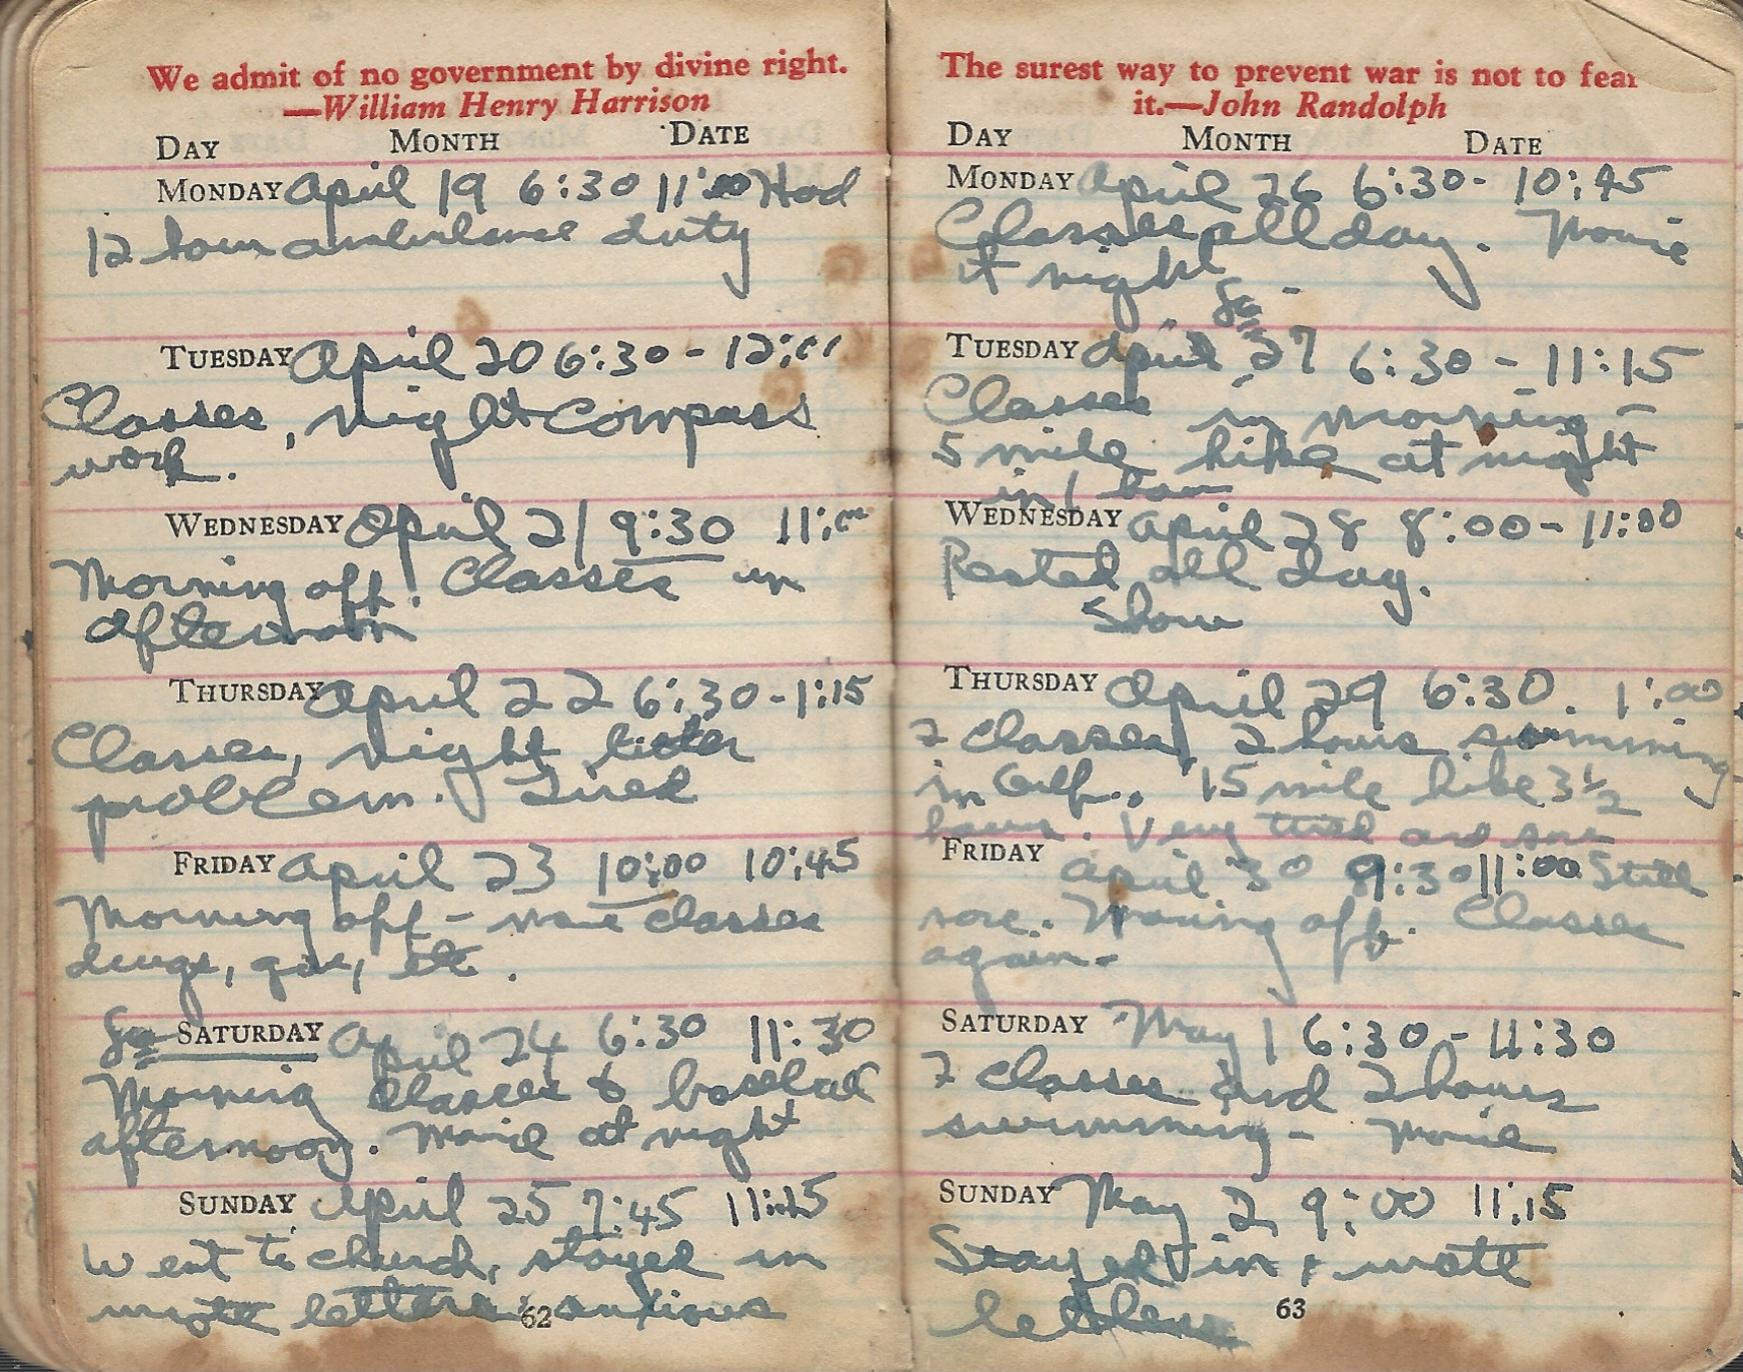 We admit of no government by divine right.
—William Henry Harrison
DAY MONTH DATE
MONDAY April 19 6:30 11:00 Had
12 hour ambulance duty
TUESDAY April 20 6:30 - 12:00
Classes, night compass
work.
WEDNESDAY April 21 9:30 11:00
Morning off. Classes in
afternoon
THURSDAY April 22 6:30-1:15
Classes, night litter
problem. Tired
FRIDAY April 23 10:00 10:45
Morning off - more classes
drugs, gas, etc.
SATURDAY April 24 6:30 11:30
Morning classes & baseball
afternoon. Movie at night
SUNDAY April 25 7:45 11:15
Went to church, stayed in
wrote letters. anxious
62
The surest way to prevent war is not to fear
it.—John Randolph
DAY MONTH DATE
MONDAY April 26 6:30 - 10:45
Classes all day. Movie
at night
TUESDAY April 27 6:30 - 11:15
Classes in morning -
5 mile hike at night
in 1 hour
WEDNESDAY April 28 8:00 - 11:00
Rested all day.
Show
THURSDAY April 29 6:30. 1:00
7 classes, 2 hours swimming
in Gulf., 15 mile hike 3 1/2
hours. Very tired and sore
FRIDAY April 30 9:30 11:00 Still
sore. Morning off. Classes
again-
SATURDAY May 1 6:30 - 11:30
7 classes and 2 hours
swimming - Movie
SUNDAY May 2 9:00 11:15
Stayed in & wrote
letters
63